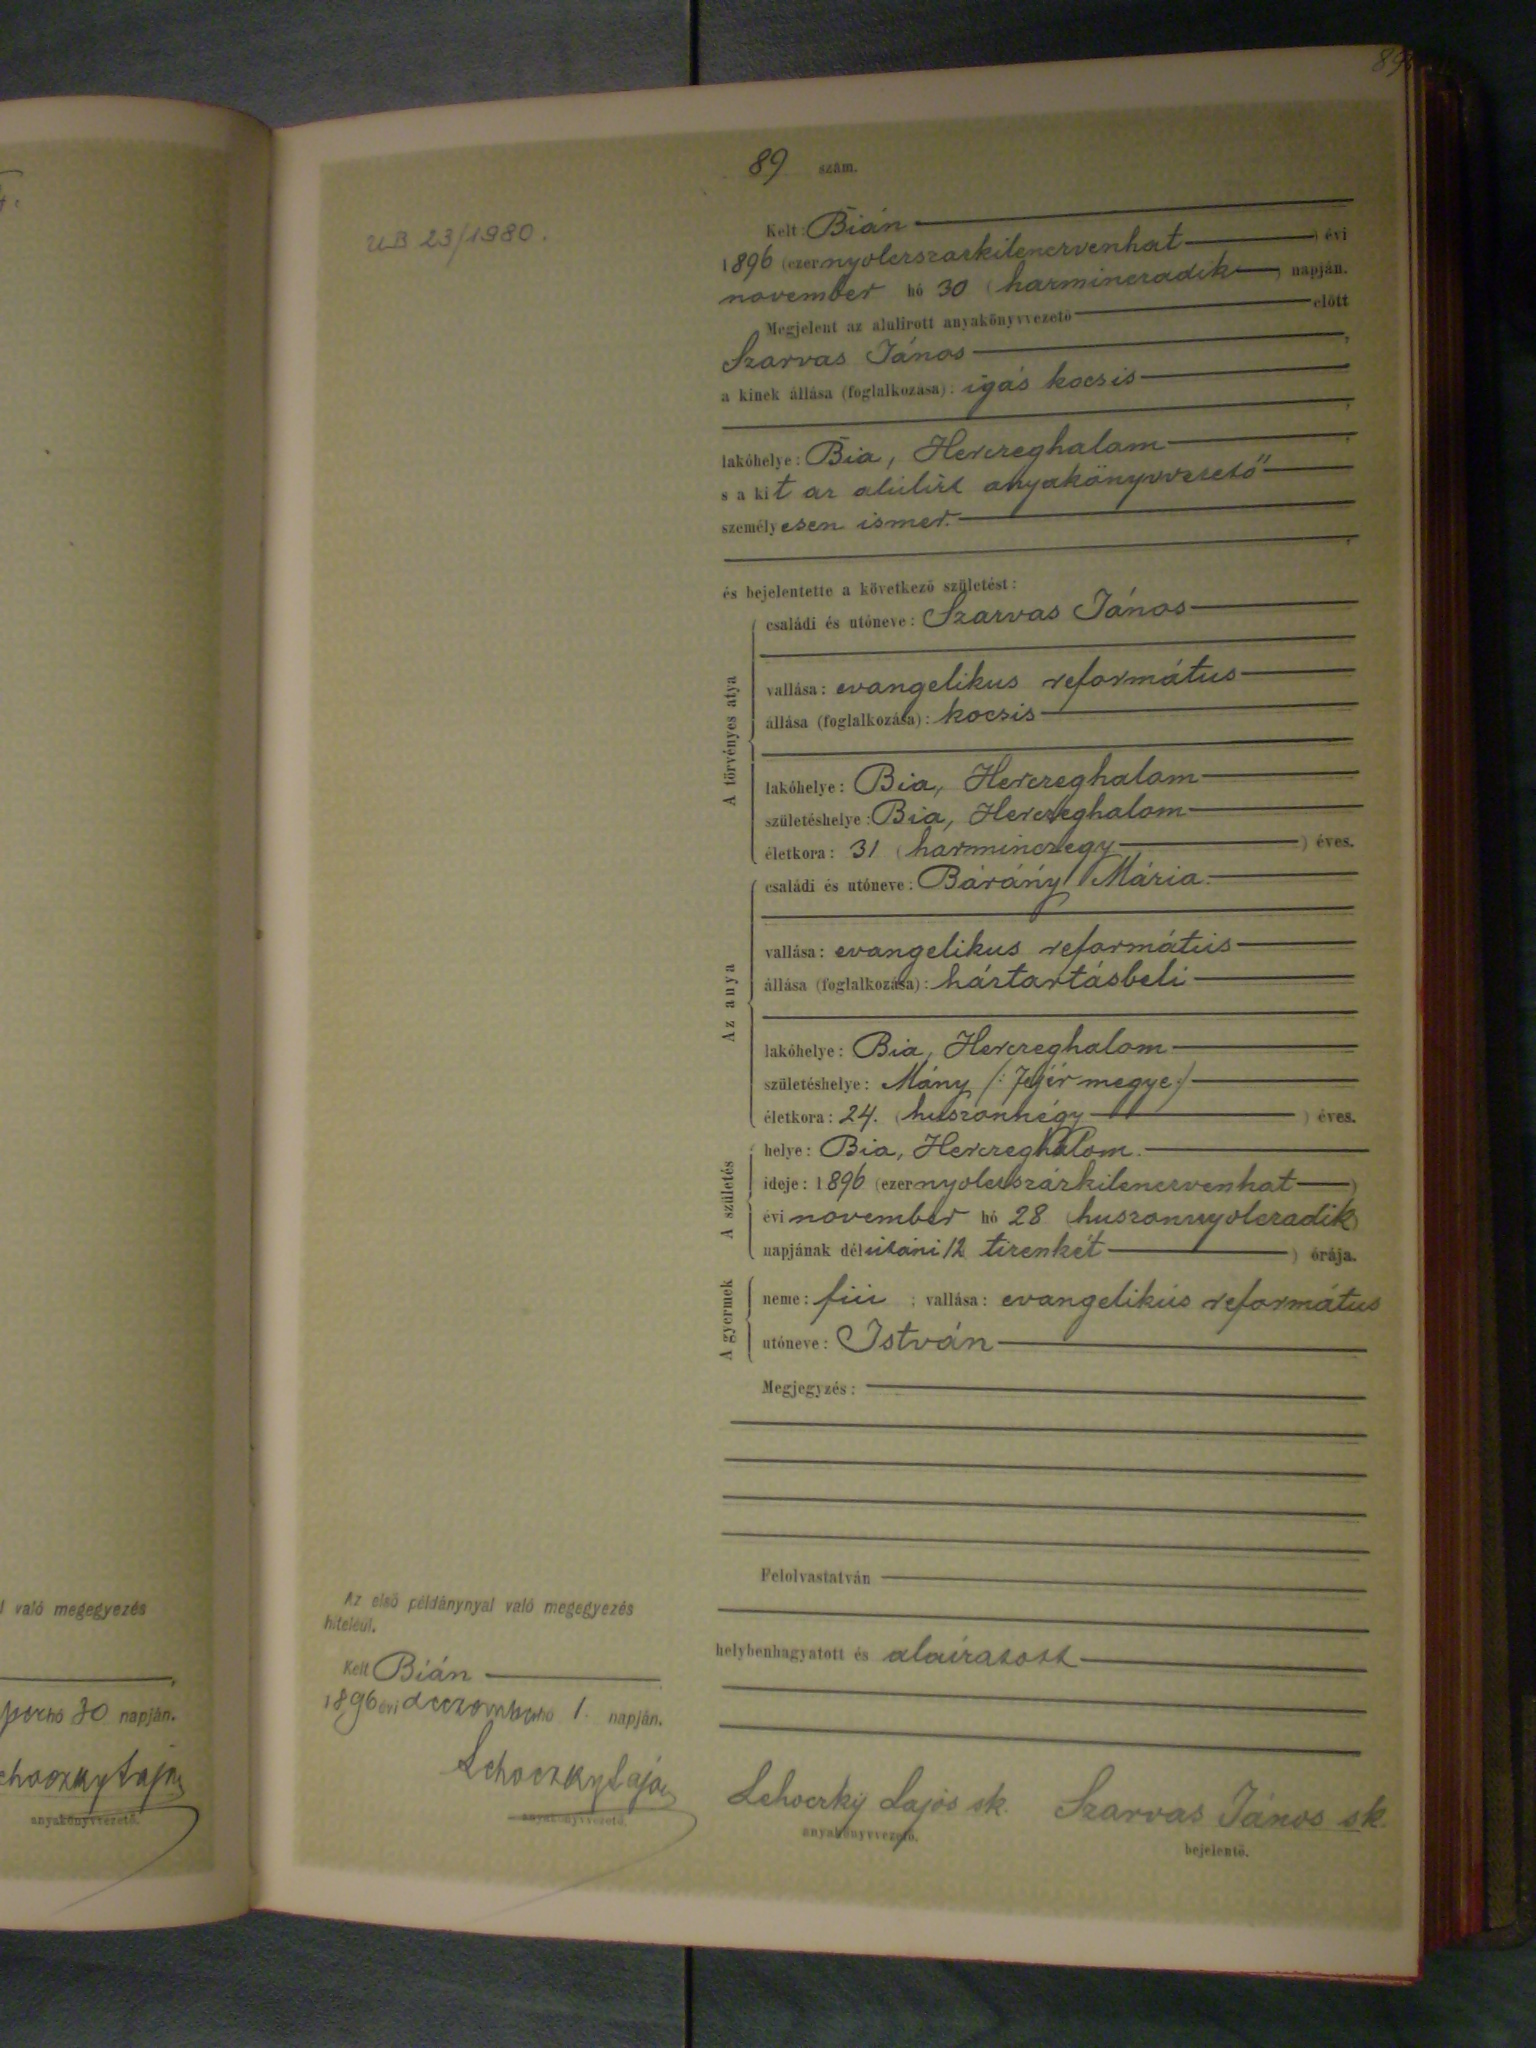 89
89 szám.
UB 23/1980.
Kelt: Bián
1896 (ezernyolczszázkilenczvenhat) évi
november hó 30 (harminczadik) napján.
Megjelent az alulirott anyakönyvvezető előtt
Szarvas János,
a kinek állása (foglalkozása): igás kocsis,
lakóhelye: Bia, Herczeghalom,
s a kit az alúlírt anyakönyvvezető
személyesen ismer.,
és bejelentette a következő születést:
A törvényes atya
családi és utóneve: Szarvas János
vallása: evangelikus református
állása (foglalkozása): kocsis
lakóhelye: Bia, Herczeghalom
születéshelye: Bia, Herczeghalom
életkora: 31 (harminczegy) éves.
Az anya
családi és utóneve: Bárány Mária.
vallása: evangelikus református
állása (foglalkozása): háztartásbeli
lakóhelye: Bia, Herczeghalom
születéshelye: Mány /: Fejér megye :/
életkora: 24. (huszonnégy) éves.
A születés
helye: Bia, Herczeghalom.
ideje: 1896 (ezernyolczszázkilenczvenhat)
évi november hó 28 (huszonnyolczadik)
napjának délutáni 12 tizenkét) órája.
A gyermek
neme: fiú; vallása: evangelikus református
utóneve: István
Megjegyzés:
Felolvastatván
helybenhagyatott és aláiratott
Lehoczky Lajos sk.
anyakönyvvezető.
Szarvas János sk.
bejelentő.
Az első példánynyal való megegyezés
hiteléül.
Kelt Bián
1896 évi deczember hó 1. napján.
Lehoczky Lajos
anyakönyvvezető.
l való megegyezés
hó 30 napján.
choczky Lajos
anyakönyvvezető.